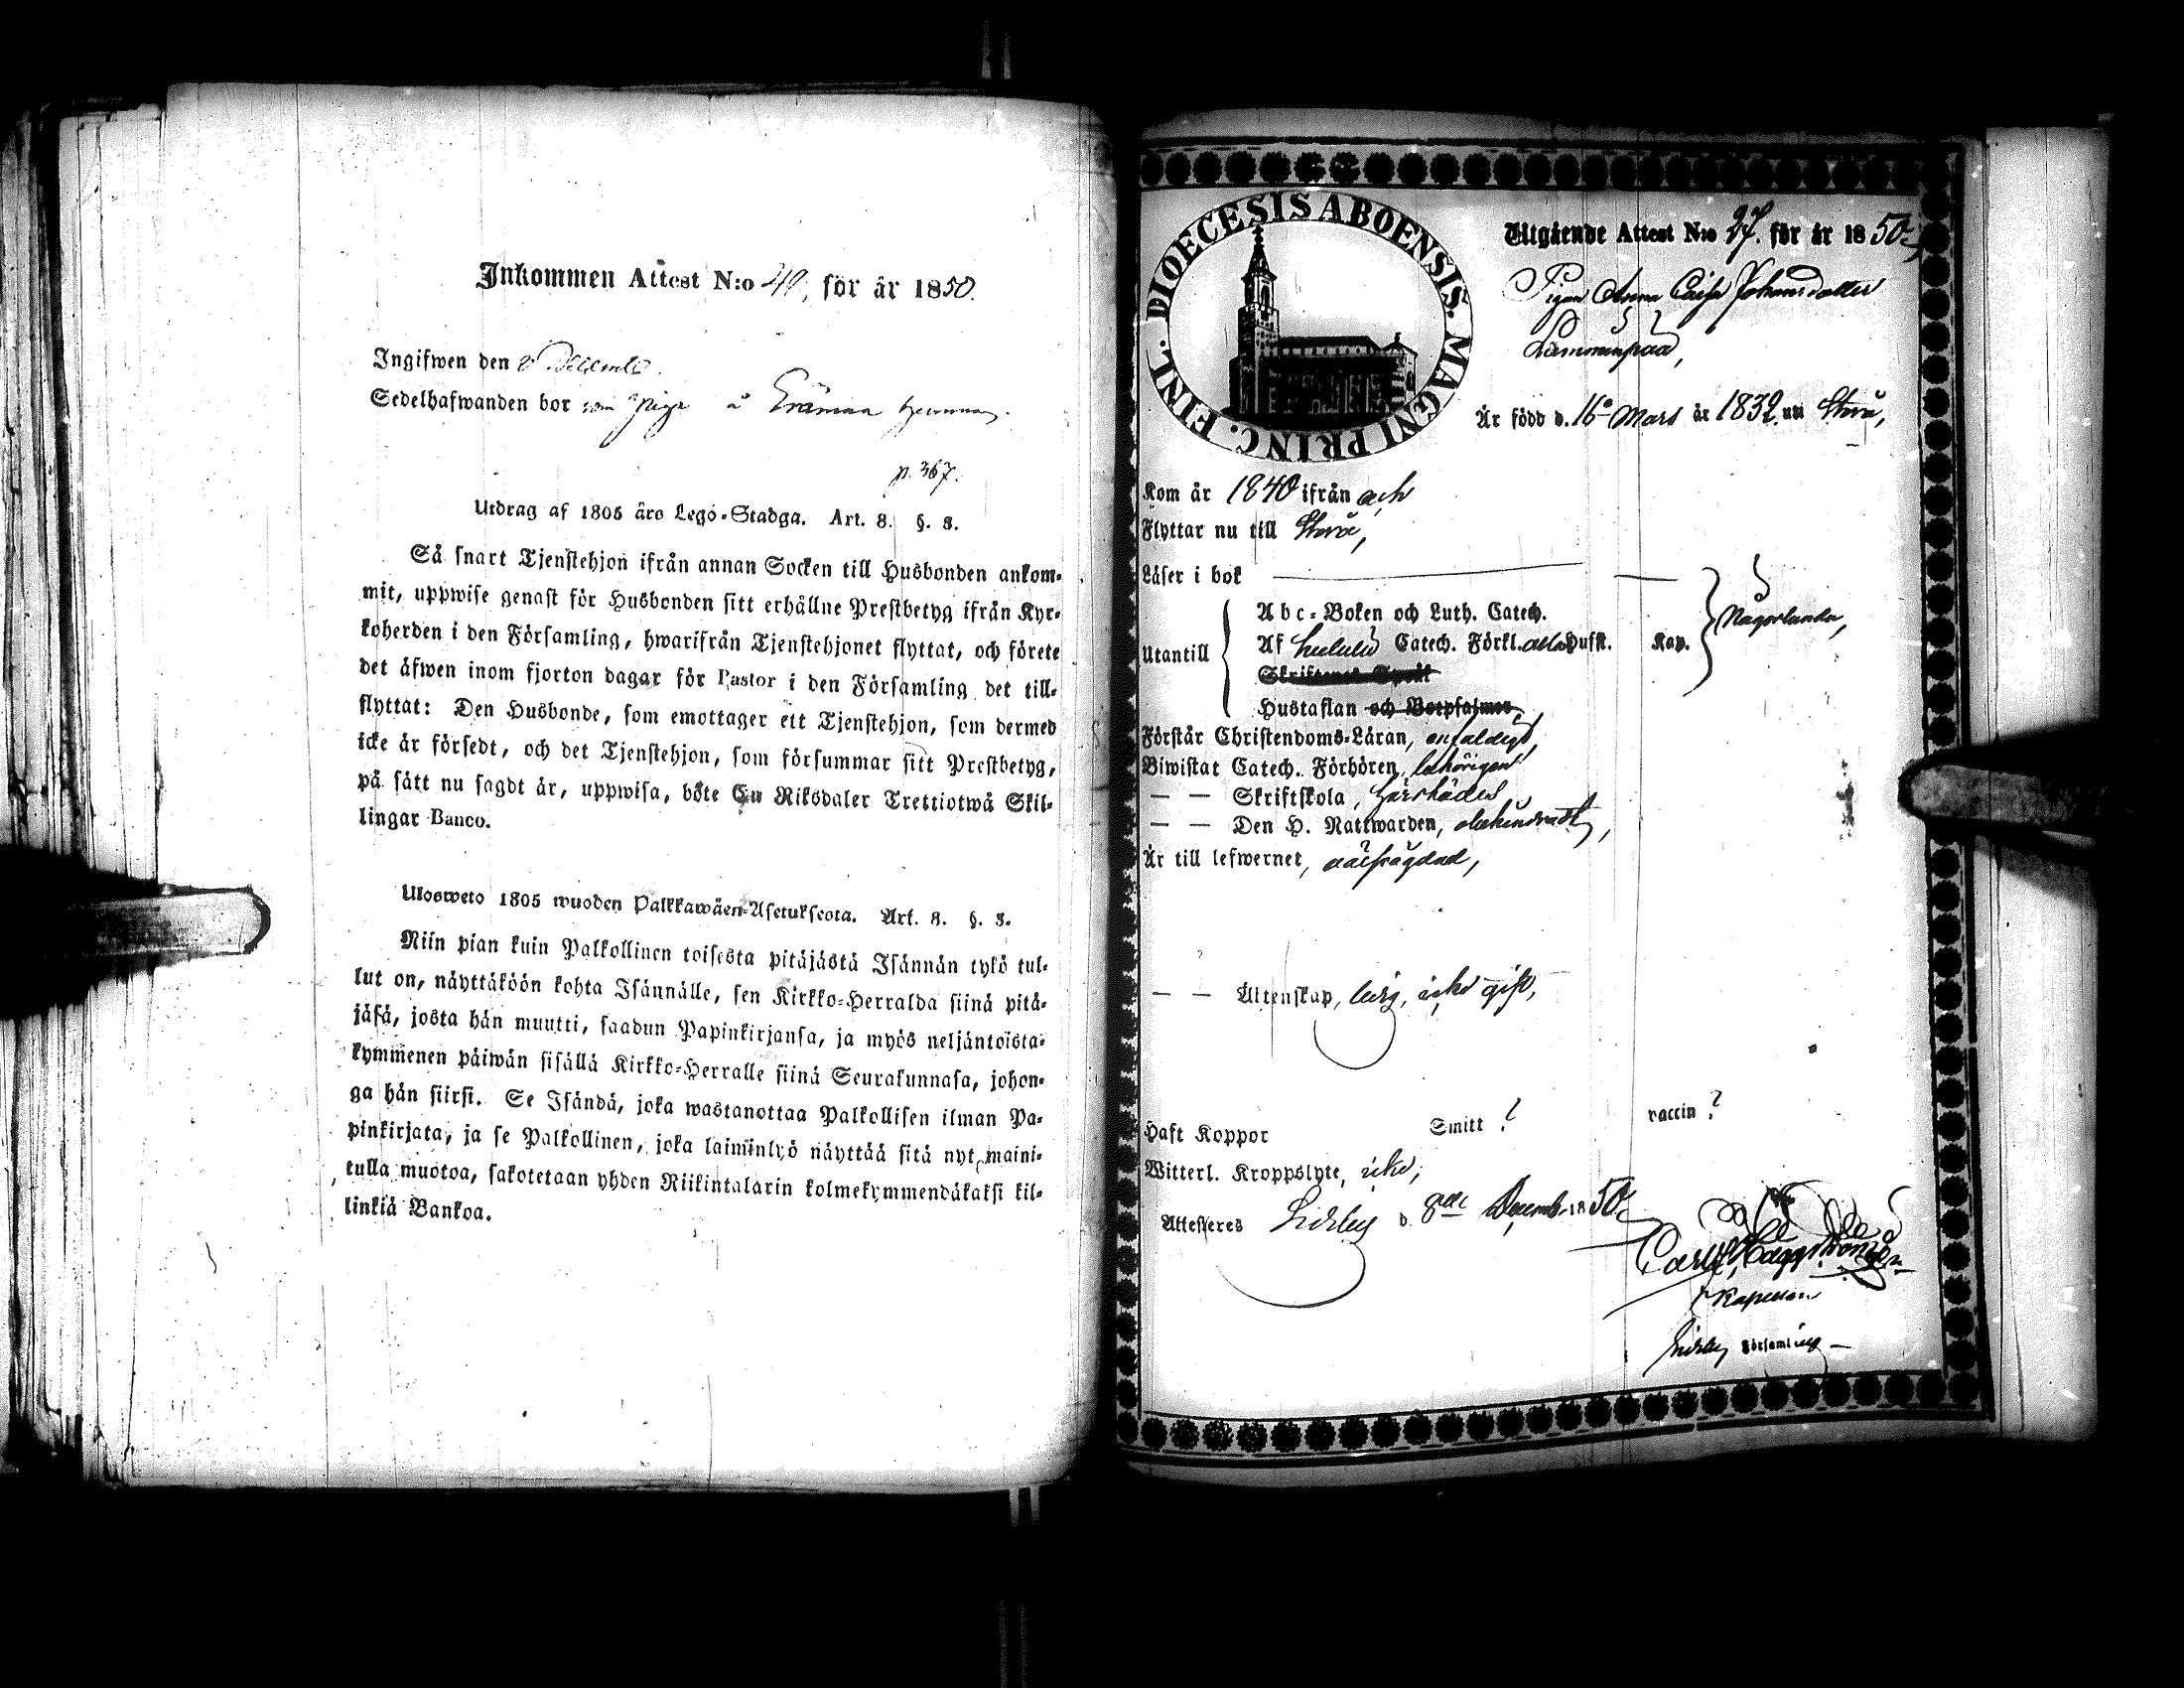 Inkommen Attest N:o 40, för år 1850.
Ingifwen den 8 December.
Sedelhafwanden bor som Piga å Erämaa hemman.
p. 367.
Utdrag af 1805 års Lego-Stadga. Art. 8. §. 8.
Så snart Tjenstehjon ifrån annan Socken till Husbonden ankom-
mit, uppwise genast för Husbonden sitt erhållne Prestbetyg ifrån Kyr-
koherden i den Församling, hwarifrån Tjenstehjonet flyttat, och förete
det äfwen inom fjorton dagar för Pastor i den Församling det till-
flyttat: Den Husbonde, som emottager ett Tjenstehjon, som dermed
icke är försedt, och det Tjenstehjon, som försummar sitt Prestbetyg,
på sätt nu sagdt är, uppwisa, böte En Riksdaler Trettiotwå Skil-
lingar Banco.
Ulosweto 1805 wuoden Palkkawäen-Asetuksesta. Art. 8. §. 8.
Niin pian kuin Palkollinen toisesta pitäjästä Isännän tykö tul-
lut on, näyttäköön kohta Isännälle, sen Kirkko-Herralda siinä pitä-
jäsä, josta hän muutti, saadun Papinkirjansa, ja myös neljäntoista-
kymmenen päiwän sisällä Kirkko-Herralle siinä Seurakunnasa, johon-
ga hän siirsi. Se Isändä, joka wastanottaa Palkollisen ilman Pa-
pinkirjata, ja se Palkollinen, joka laiminlyö näyttää sitä nyt maini-
tulla muotoa, sakotetaan yhden Riikintalarin kolmekymmendäkaksi kil-
linkiä Bankoa.
DIOECESIS ABOENSIS. MAGNI PRINC. FINL.
Utgående Attest N:o 27. för år 1850,
Pigan Anna Caisa Johansdotter
Lammenpää,
Är född d. 16 Mars år 1832 uti Storå,
Kom år 1840 ifrån och
Flyttar nu till Storå,
Läser i bok
Abc-Boken och Luth. Catech.
Utantill Af Catech. Förkl. alla Hufst. Kap. Någorlunda,
Skriftenes Språk
Hustaflan och Botpsalmer,
Förstår Christendoms-Läran, enfaldigt,
Biwistat Catech. Förhören, behörigen
— — Skriftskola,
— — Den H. Nattwarden, obehindradt,
Är till lefwernet, oäfsägdad,
— — Äktenskap, ledig, icke gift,
Haft Koppor Smitt ? vaccin ?
Witterl. Kroppslyte, icke,
Attesteres Lideby d. 8de Decemb. 1850
Carl Häggström
Kapellan
Församling